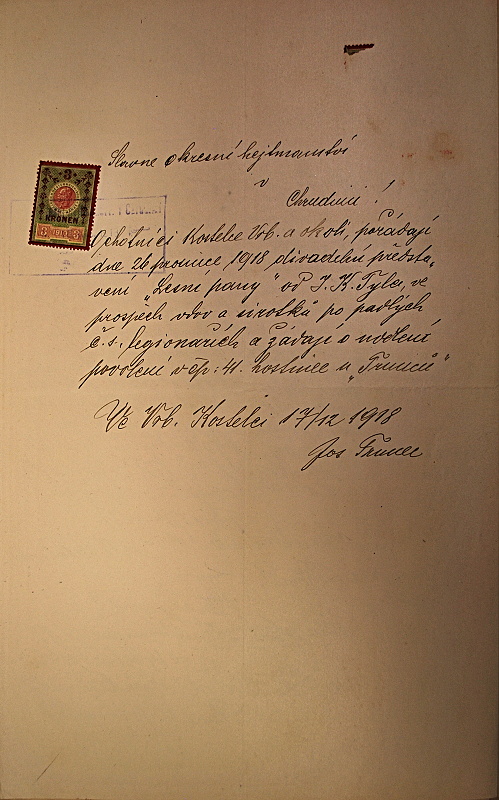 Slavné okresní hejtmanství
v
Chrudimi!
Ochotníci Kostelce Vrb. a okolí, pořádají
dne 26 prosince 1918 divadelní předsta„
vení „Lesní panny" od J. K. Tyla, ve
prospěch vdov a sirotků po padlých
č. s. legionářích a žádají o udělení
povolení v čp: 41. hostinec u „Trunců"
Ve Vrb. Kostelci 17/12 1918
Jos Trunec
3
KRONEN
3 1916 3